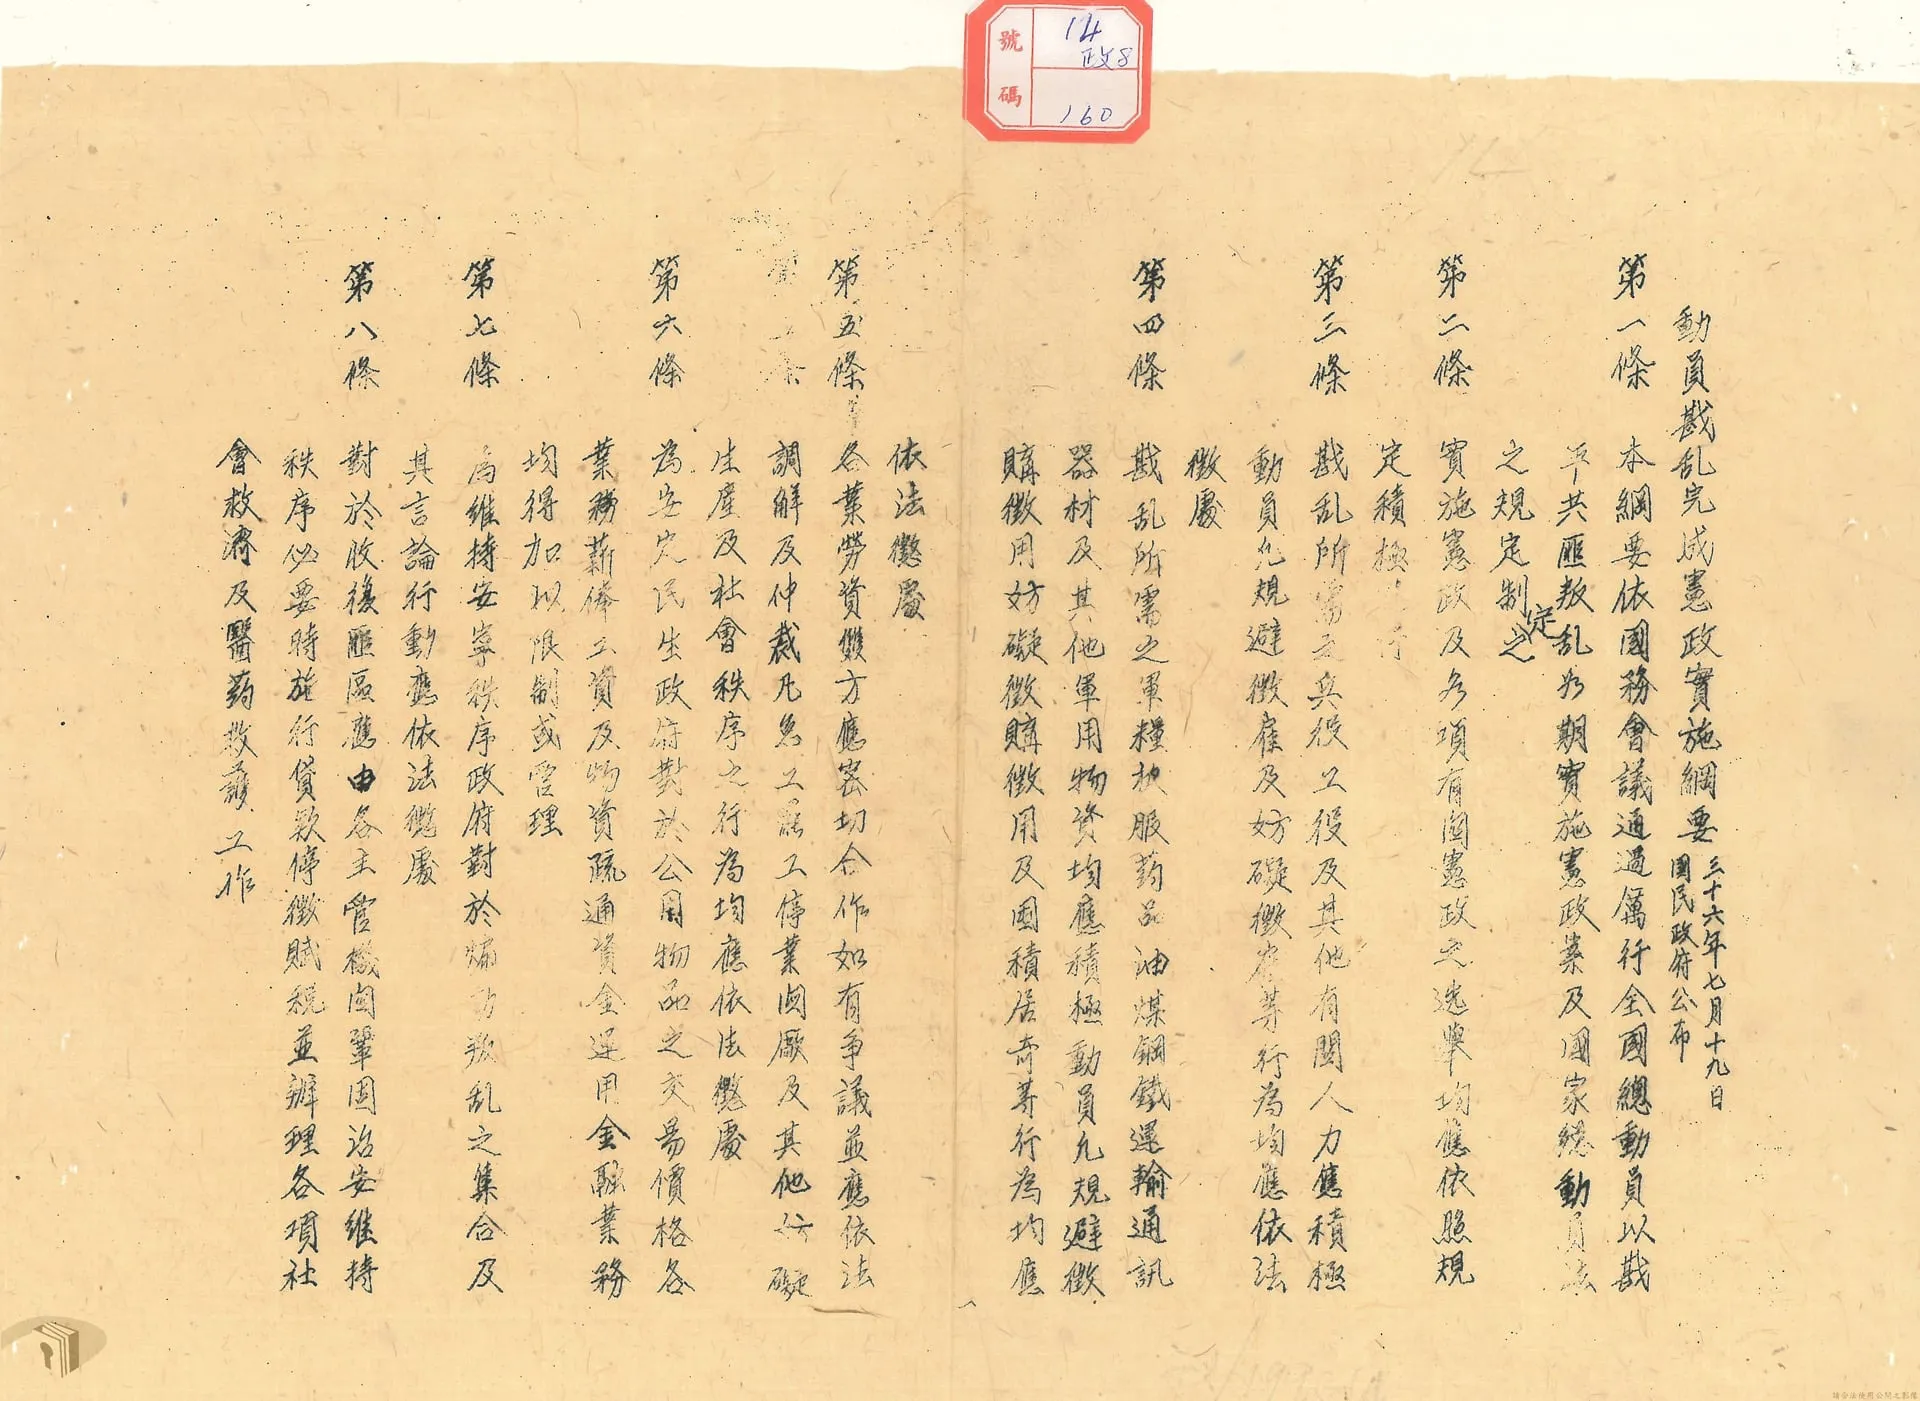 號碼
14
政8
160
動員戡乱完成憲政實施綱要
三十六年七月十九日
國民政府公布
第一條 本綱要依國務會議通過厲行全國總動員以戡
平共匪叛乱如期實施憲政案及國家總動員法
之規定制定之
第二條 實施憲政及各項有関憲政之选舉均應依照規
定積極行
第三條 戡乱所需之兵役工役及其他有関人力應積極
動員凡規避徵雇及妨礙徵雇等行為均應依法
徵處
第四條 戡乱所需之軍糧被服药品油煤鋼鐵運輸通訊
器材及其他軍用物資均應積極動員凡規避徵
購徵用妨礙徵購徵用及囤積居奇等行為均應
依法懲處
第五條 各業勞資雙方應密切合作如有争議並應依法
調解及仲裁凡怠工罷工停業関廠及其他妨礙
生產及社會秩序之行為均應依法懲處
第六條 為安定民生政府對於公用物品之交易價格各
業務薪俸工資及物資疏通資金運用金融業務
均得加以限制或管理
第七條 為維持安寧秩序政府對於煽動叛乱之集合及
其言論行動應依法懲處
第八條 對於收復匪區應由各主管機関鞏固治安維持
秩序必要時施行貸款停徵賦税並辦理各項社
會救濟及醫药救護工作
請合法使用公開之影像